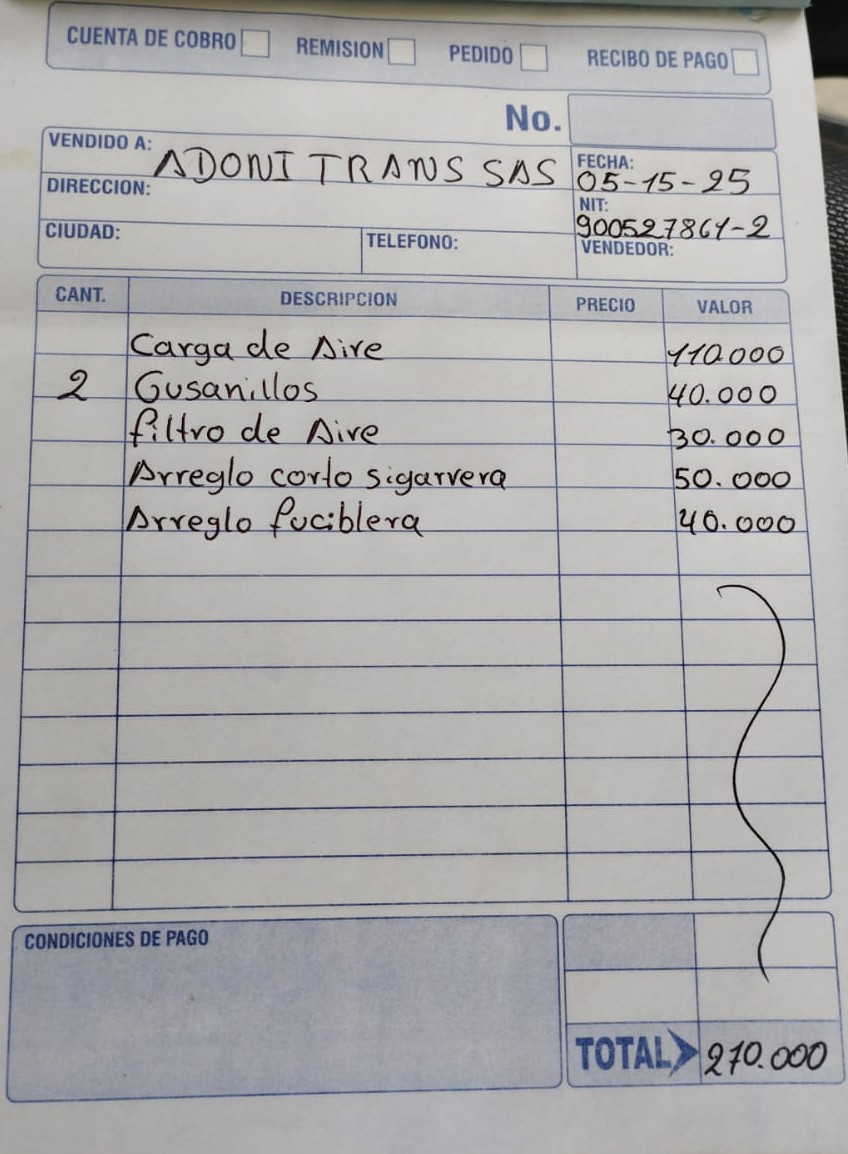 CUENTA DE COBRO REMISION PEDIDO RECIBO DE PAGO
No.
VENDIDO A: ADONITRANS SAS
FECHA: 05-15-25
DIRECCION:
NIT: 900527861-2
CIUDAD: TELEFONO: VENDEDOR:
CANT. DESCRIPCION PRECIO VALOR
Carga de Aire 110.000
2 Gusanillos 40.000
filtro de Aire 30.000
Arreglo corto sigarrera 50.000
Arreglo fuciblera 40.000
CONDICIONES DE PAGO
TOTAL 270.000